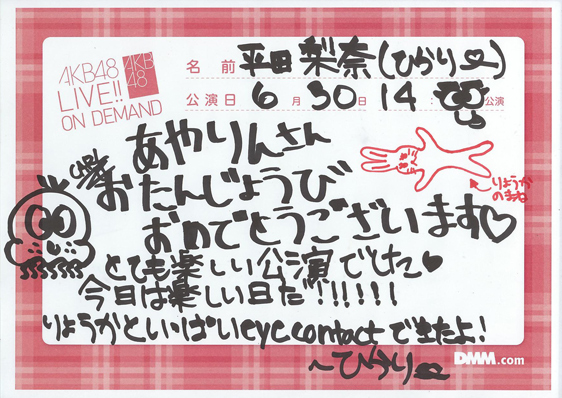 AKB48
LIVE!!
ON DEMAND
AKB
48
名前 平田 梨奈(ひかり)
公演日 6月30日 14: 公演
あやりんさん
おたんじょうび
おめでとうございます♡
りょうか
のまね
とても楽しい公演でした♥
今日は楽しい日だ!!!!!!
りょうかといっぱいeye contactできたよ!
〜ひかり
DMM.com